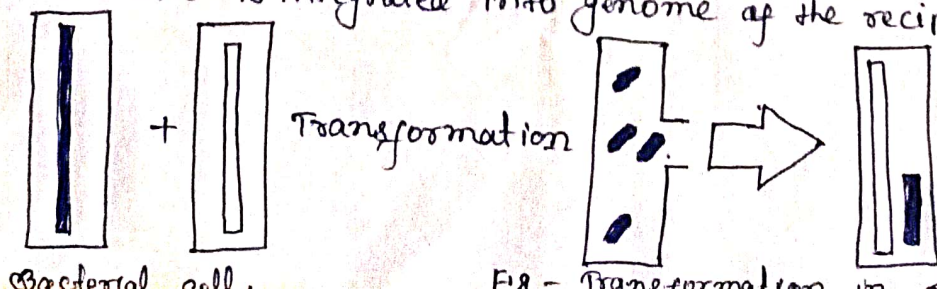 integrated into genome of the
+ Transformation
Bacterial cell.
Fig - Transformation in